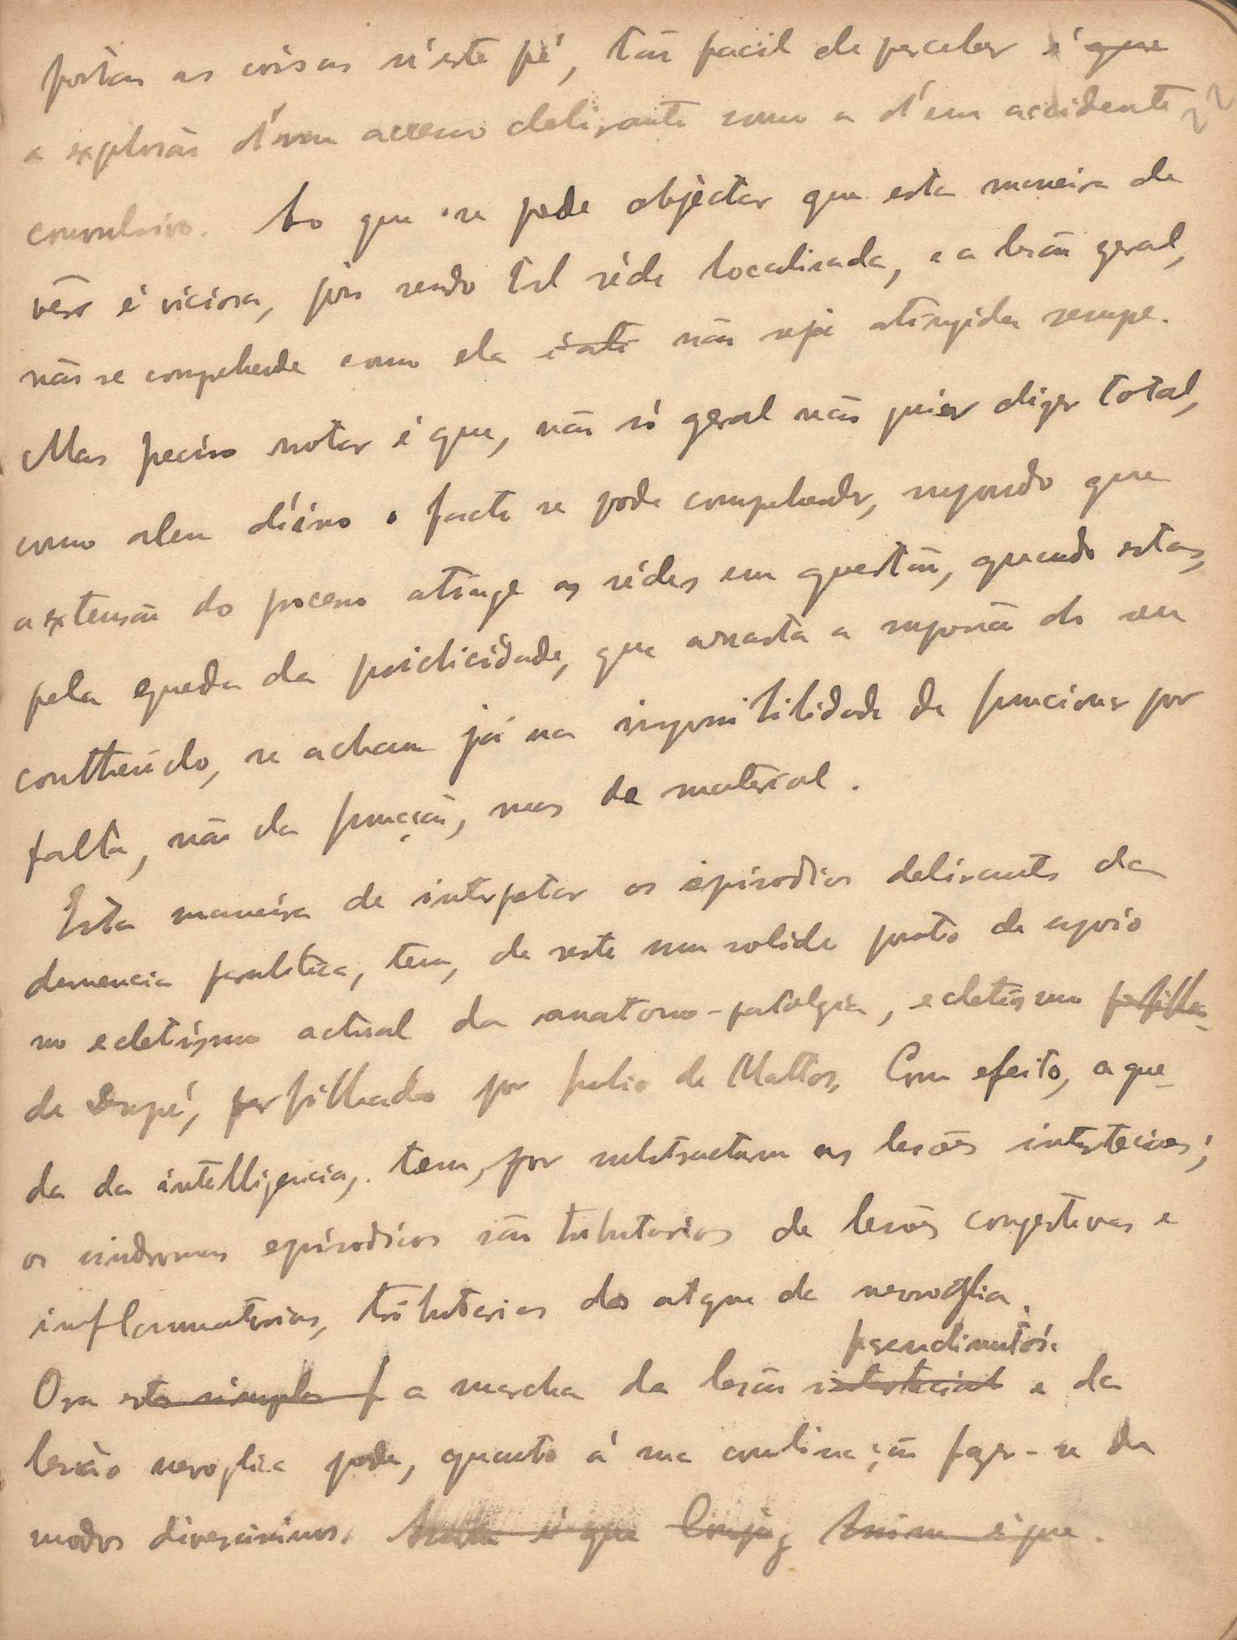 postas as coisas n'este pé, tão facil de perceber é que
a explosão d'um accesso delirante como a d'um accidente
convulsivo. Ao que se pode objectar que esta maneira de
vêr é viciosa, pois sendo tal séde localisada, e a lesão geral,
não se comprehende como ela não seja atingida sempre.
Mas preciso notar é que, não só geral não quier dizer total,
como alem d'isso o facto se pode comprehender, suppondo que
a extensão do processo atinge as sédes em questão, quando estas,
pela queda da psichicidade, que arrasta a do seu
conttheúdo, se acham já na impossibilidade de funcionar por
falta, não da funcção, mas de material.
Esta maneira de interpetar os episodios delirants da
demencia paralitica, tem, de resto um solido ponto de apoio
no ecletismo actual da anatomo-patolgia, ecletismo perfilha-
de Dupré, perfilhado por Julio de Mattos, Com efeito, a que-
da da intelligencia, tem, por substractum as lesões intersteciaes;
os sindromas episodicos são tributarios de lesões congestivas e
inflammatorias, tributarias do atque da nevroglia.
Ora esta simples f a marcha da lesão intersticial e da
lesão neroglica pode, quanto á sua combinação fazer-se de
modos diversissimos. é que